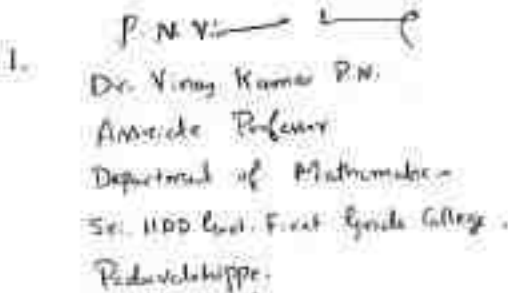 P. N. Vi
1.
Dr. Vinay Kumar P.N.
Associate Professor
Department of Mathematics
Sri. HDD Govt. First Grade College.
Paduvalahippe.